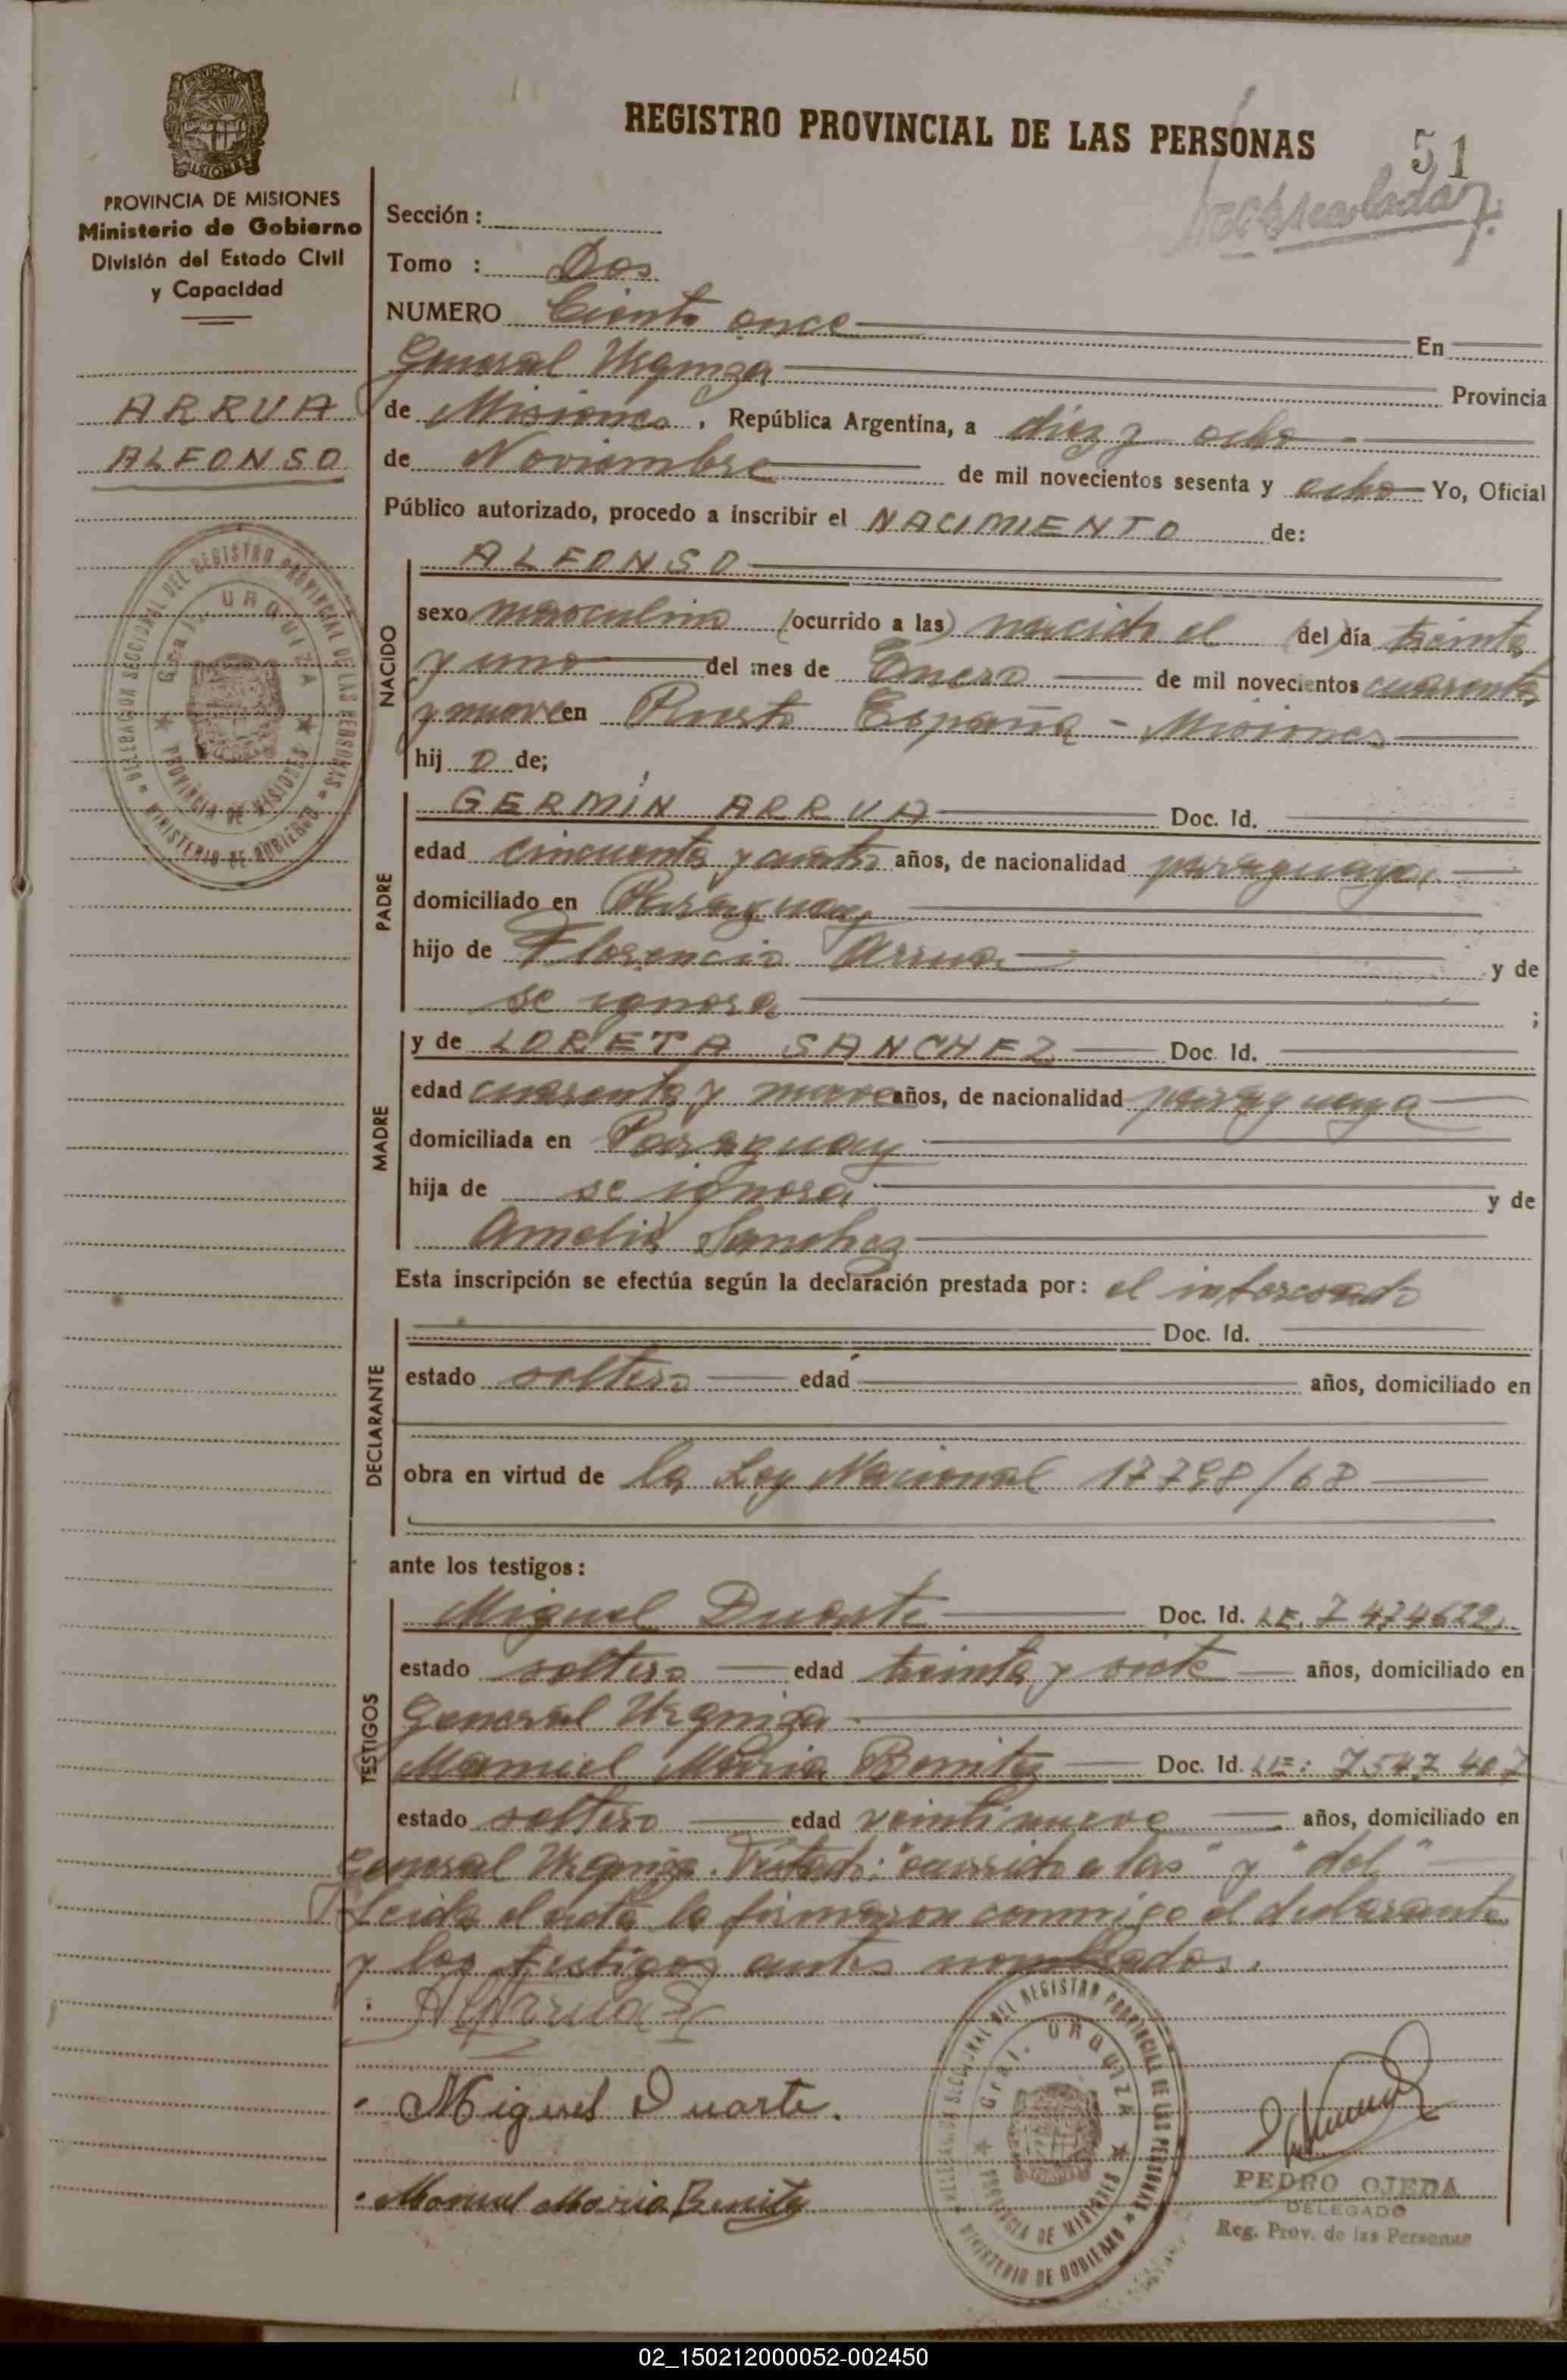 REGISTRO PROVINCIAL DE LAS PERSONAS
51
MISIONES
PROVINCIA DE MISIONES
Ministerio de Gobierno
División del Estado Civil
y Capacidad
ARRUA
ALFONSO
Sección :
Tomo : Dos
NUMERO Ciento once En
General Urquiza Provincia
de Misiones . República Argentina, a diez y ocho
de Noviembre de mil novecientos sesenta y ocho Yo, Oficial
Público autorizado, procedo a inscribir el NACIMIENTO de:
NACIDO
ALFONSO
sexo masculino (ocurrido a las) nacido el (del) día treinta
y uno del mes de Enero de mil novecientos cuarenta
y nueve en Puerto España - Misiones
hij o de;
PADRE
GERMÍN ARRUA Doc. Id.
edad cincuenta y cuatro años, de nacionalidad paraguaya
domiciliado en Paraguay
hijo de Florencio Arrua y de
se ignora ;
MADRE
y de LORETA SANCHEZ Doc. Id.
edad cuarenta y nueve años, de nacionalidad paraguaya
domiciliada en Paraguay
hija de se ignora y de
Amelia Sanchez
Esta inscripción se efectúa según la declaración prestada por: el interesado
DECLARANTE
Doc. Id.
estado soltero edad años, domiciliado en
obra en virtud de la Ley Nacional 17798/68
ante los testigos:
TESTIGOS
Miguel Duarte Doc. Id. LE. 7 474622.
estado soltero edad treinta y siete años, domiciliado en
General Urquiza
Manuel Maria Benitez Doc. Id. LE: 7547 407
estado soltero edad veintinueve años, domiciliado en
General Urquiza. Testado: "ocurrido a las" y "del"
Leida el acta la firmaron conmigo el declarante
y los testigos antes nombrados.
Miguel Duarte.
Manuel Maria Benitez
DELEGACION SECCIONAL DEL REGISTRO PROVINCIAL DE LAS PERSONAS
Gral. URQUIZA
PROVINCIA DE MISIONES
MINISTERIO DE GOBIERNO
PEDRO OJEDA
DELEGADO
Reg. Prov. de las Personas
02_150212000052-002450